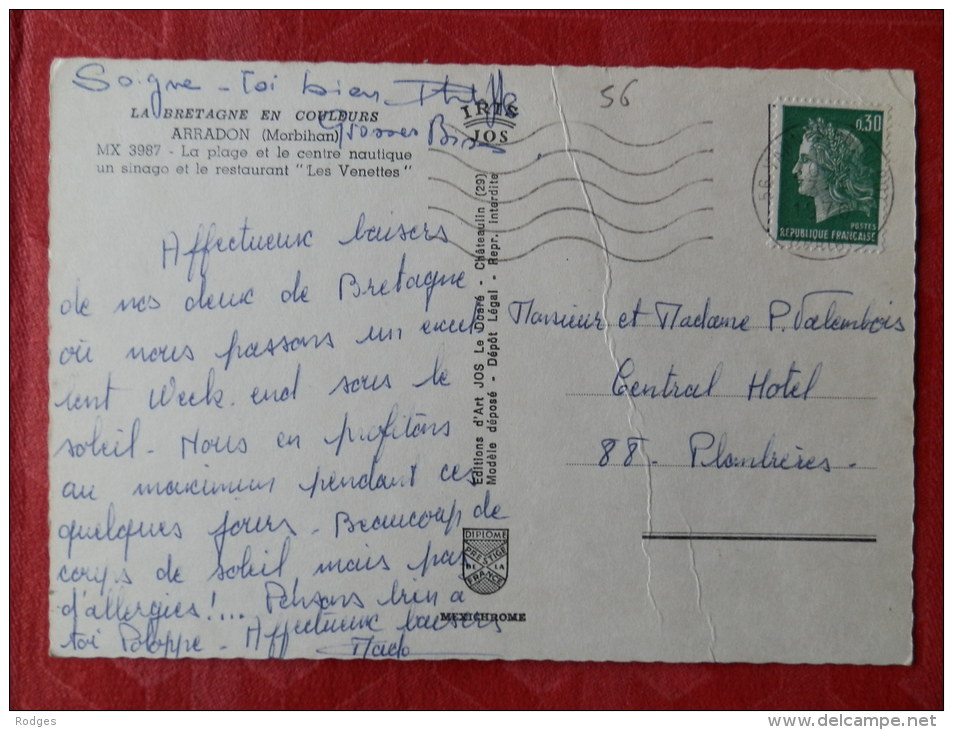 Soigne-toi bien
Grosses Bises
56
LA BRETAGNE EN COULEURS
ARRADON (Morbihan)
MX 3987 - La plage et le centre nautique
un sinago et le restaurant "Les Venettes"
IRIS
JOS
0,30
POSTES
RÉPUBLIQUE FRANÇAISE
Affectueux baisers
de nos deux de Bretagne
où nous passons un excel
lent Week-end sous le
soleil. Nous en profitons
au maximum pendant ces
quelques jours. Beaucoup de
corps de soleil mais pas
d'allergies!... Pensons bien à
toi Affectueux baisers
Mado
Editions d'Art JOS Le Doaré - Châteaulin (29)
Modèle déposé - Dépôt Légal - Repr. interdite
DIPLOME
PRESTIGE
DE LA
FRANCE
MEXICHROME
Monsieur et Madame P. Valembois
Central Hotel
88 - Plombières -
Rodges
delcampe.net